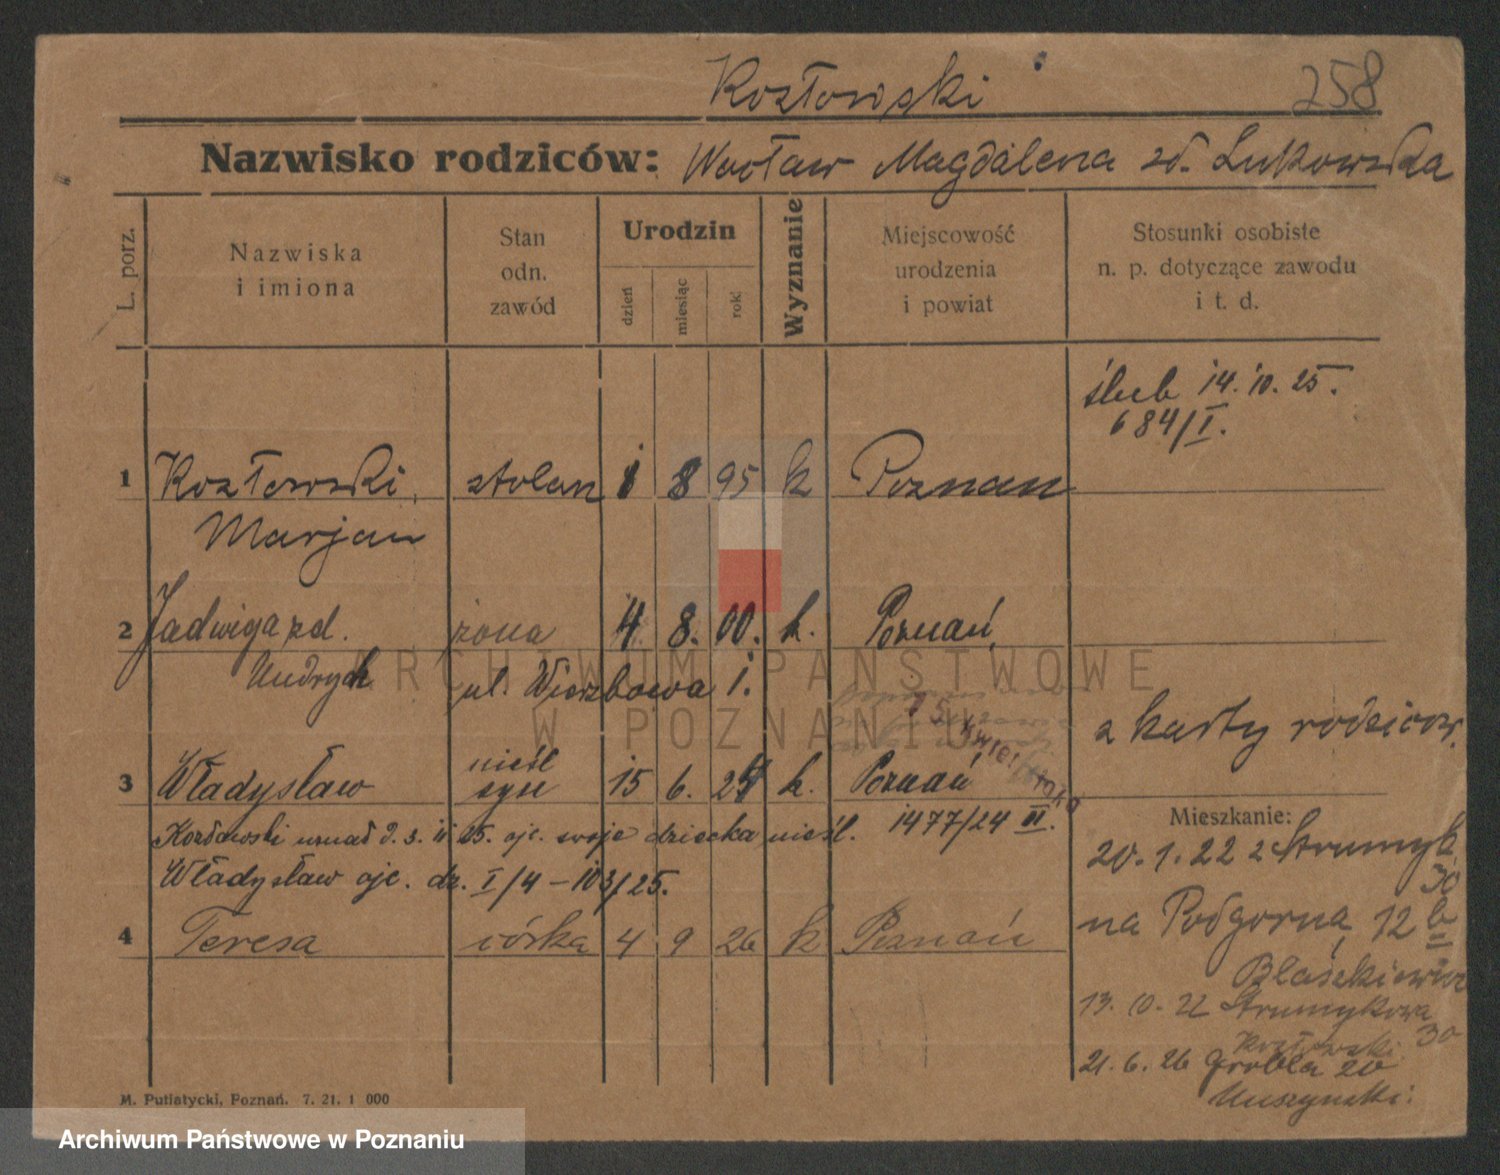 Kozłowski
258
Nazwisko rodziców: Wacław Magdalena zd. Łukowska
L. porz.
Nazwiska i imiona
Stan odn. zawód
Urodzin
dzień
miesiąc
rok
Wyznanie
Miejscowość urodzenia i powiat
Stosunki osobiste n. p. dotyczące zawodu i t. d.
ślub 14.10.25.
684/I.
1 Kozłowski, stolarz 1 8 95 k Poznań
Marjan
2 Jadwiga zd. żona 4. 8. 00. k. Poznań
ul. Wierzbowa 1.
z karty rodziców.
nieśl
3 Władysław syn 15 6. 24 k. Poznań
1477/24 II.
Kozłowski uznał d. 3. 25. ojc. swoje dziecko nieśl.
Władysław ojc. dz. I/4 – 103/25.
4 Teresa córka 4 9 26 k Poznań
Mieszkanie:
20.1.22 z Strumyk. 30
na Podgórna 12 b
Błaśzkiewicz
13. 10. 22 Strumykowa 30
Kozłowski
21. 6. 26 Grobla 20
Muszyński.
M. Putiatycki, Poznań. 7. 21. 1 000
ARCHIWUM PAŃSTWOWE
W POZNANIU
Archiwum Państwowe w Poznaniu